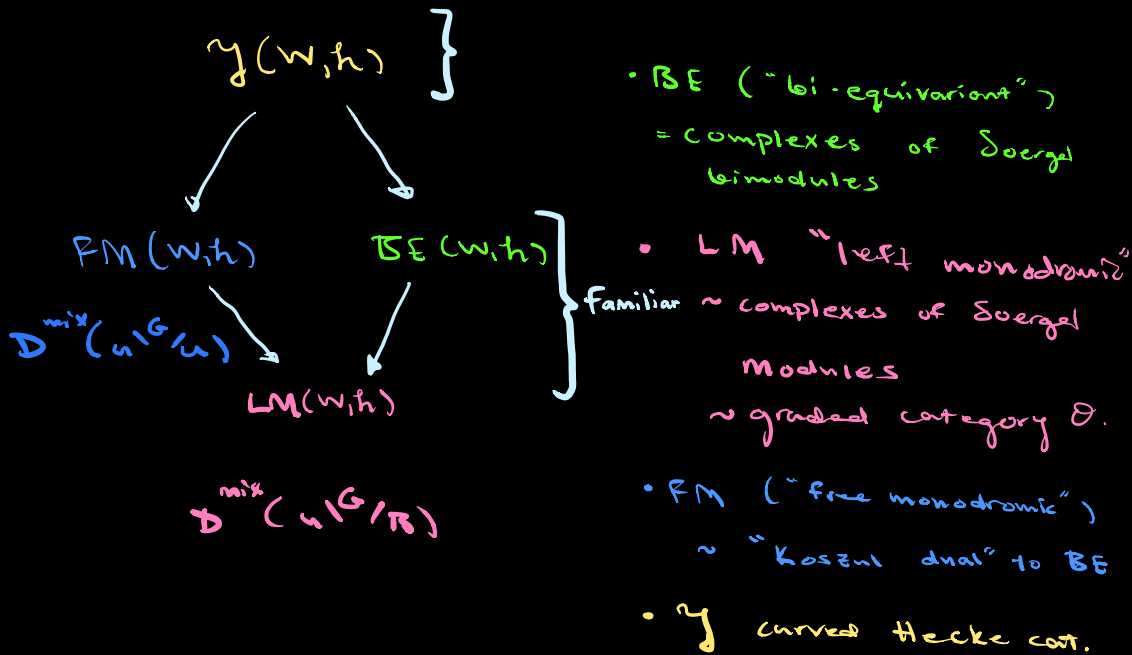 Y(W,h)
FM(W,h)
BE(W,h)
familiar
D^mix(U\G/U)
LM(W,h)
D^mix(U\G/B)
• BE ("bi-equivariant")
= complexes of Soergel
bimodules
• LM "left monodromic"
~ complexes of Soergel
modules
~ graded category O.
• FM ("free monodromic")
~ "Koszul dual" to BE
• Y curved Hecke cat.